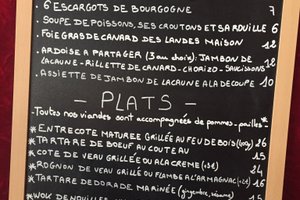 6 ESCARGOTS DE BOURGOGNE 7
SOUPE DE POISSONS, SES CROUTONS ET SA ROUILLE 6
FOIE GRAS DE CANARD DES LANDES MAISON 12
ARDOISE A PARTAGER (3 au choix): JAMBON DE
LACAUNE - RILLETTE DE CANARD - CHORIZO - SAUCISSON 12
ASSIETTE DE JAMBON DE LACAUNE A LA DECOUPE 10
- PLATS -
-Toutes nos viandes sont accompagnées de pommes pailles-
*ENTRECOTE MATUREE GRILLÉE AU FEU DE BOIS 26
*TARTARE DE BOEUF AU COUTEAU 15
COTE DE VEAU GRILLÉE OU A LA CREME 24
*ROGNON DE VEAU GRILLÉ OU FLAMBÉ A L'ARMAGNAC 16
*TARTARE DE DORADE MARINÉE (gingembre, sésame) 15
*WOK DE NOUILLES